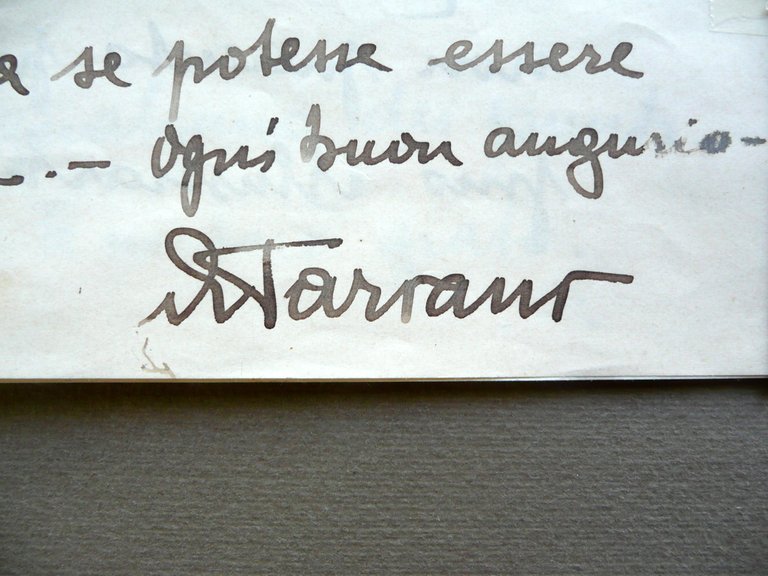 se potesse essere
.– Ogni buon augurio–
RTarrant